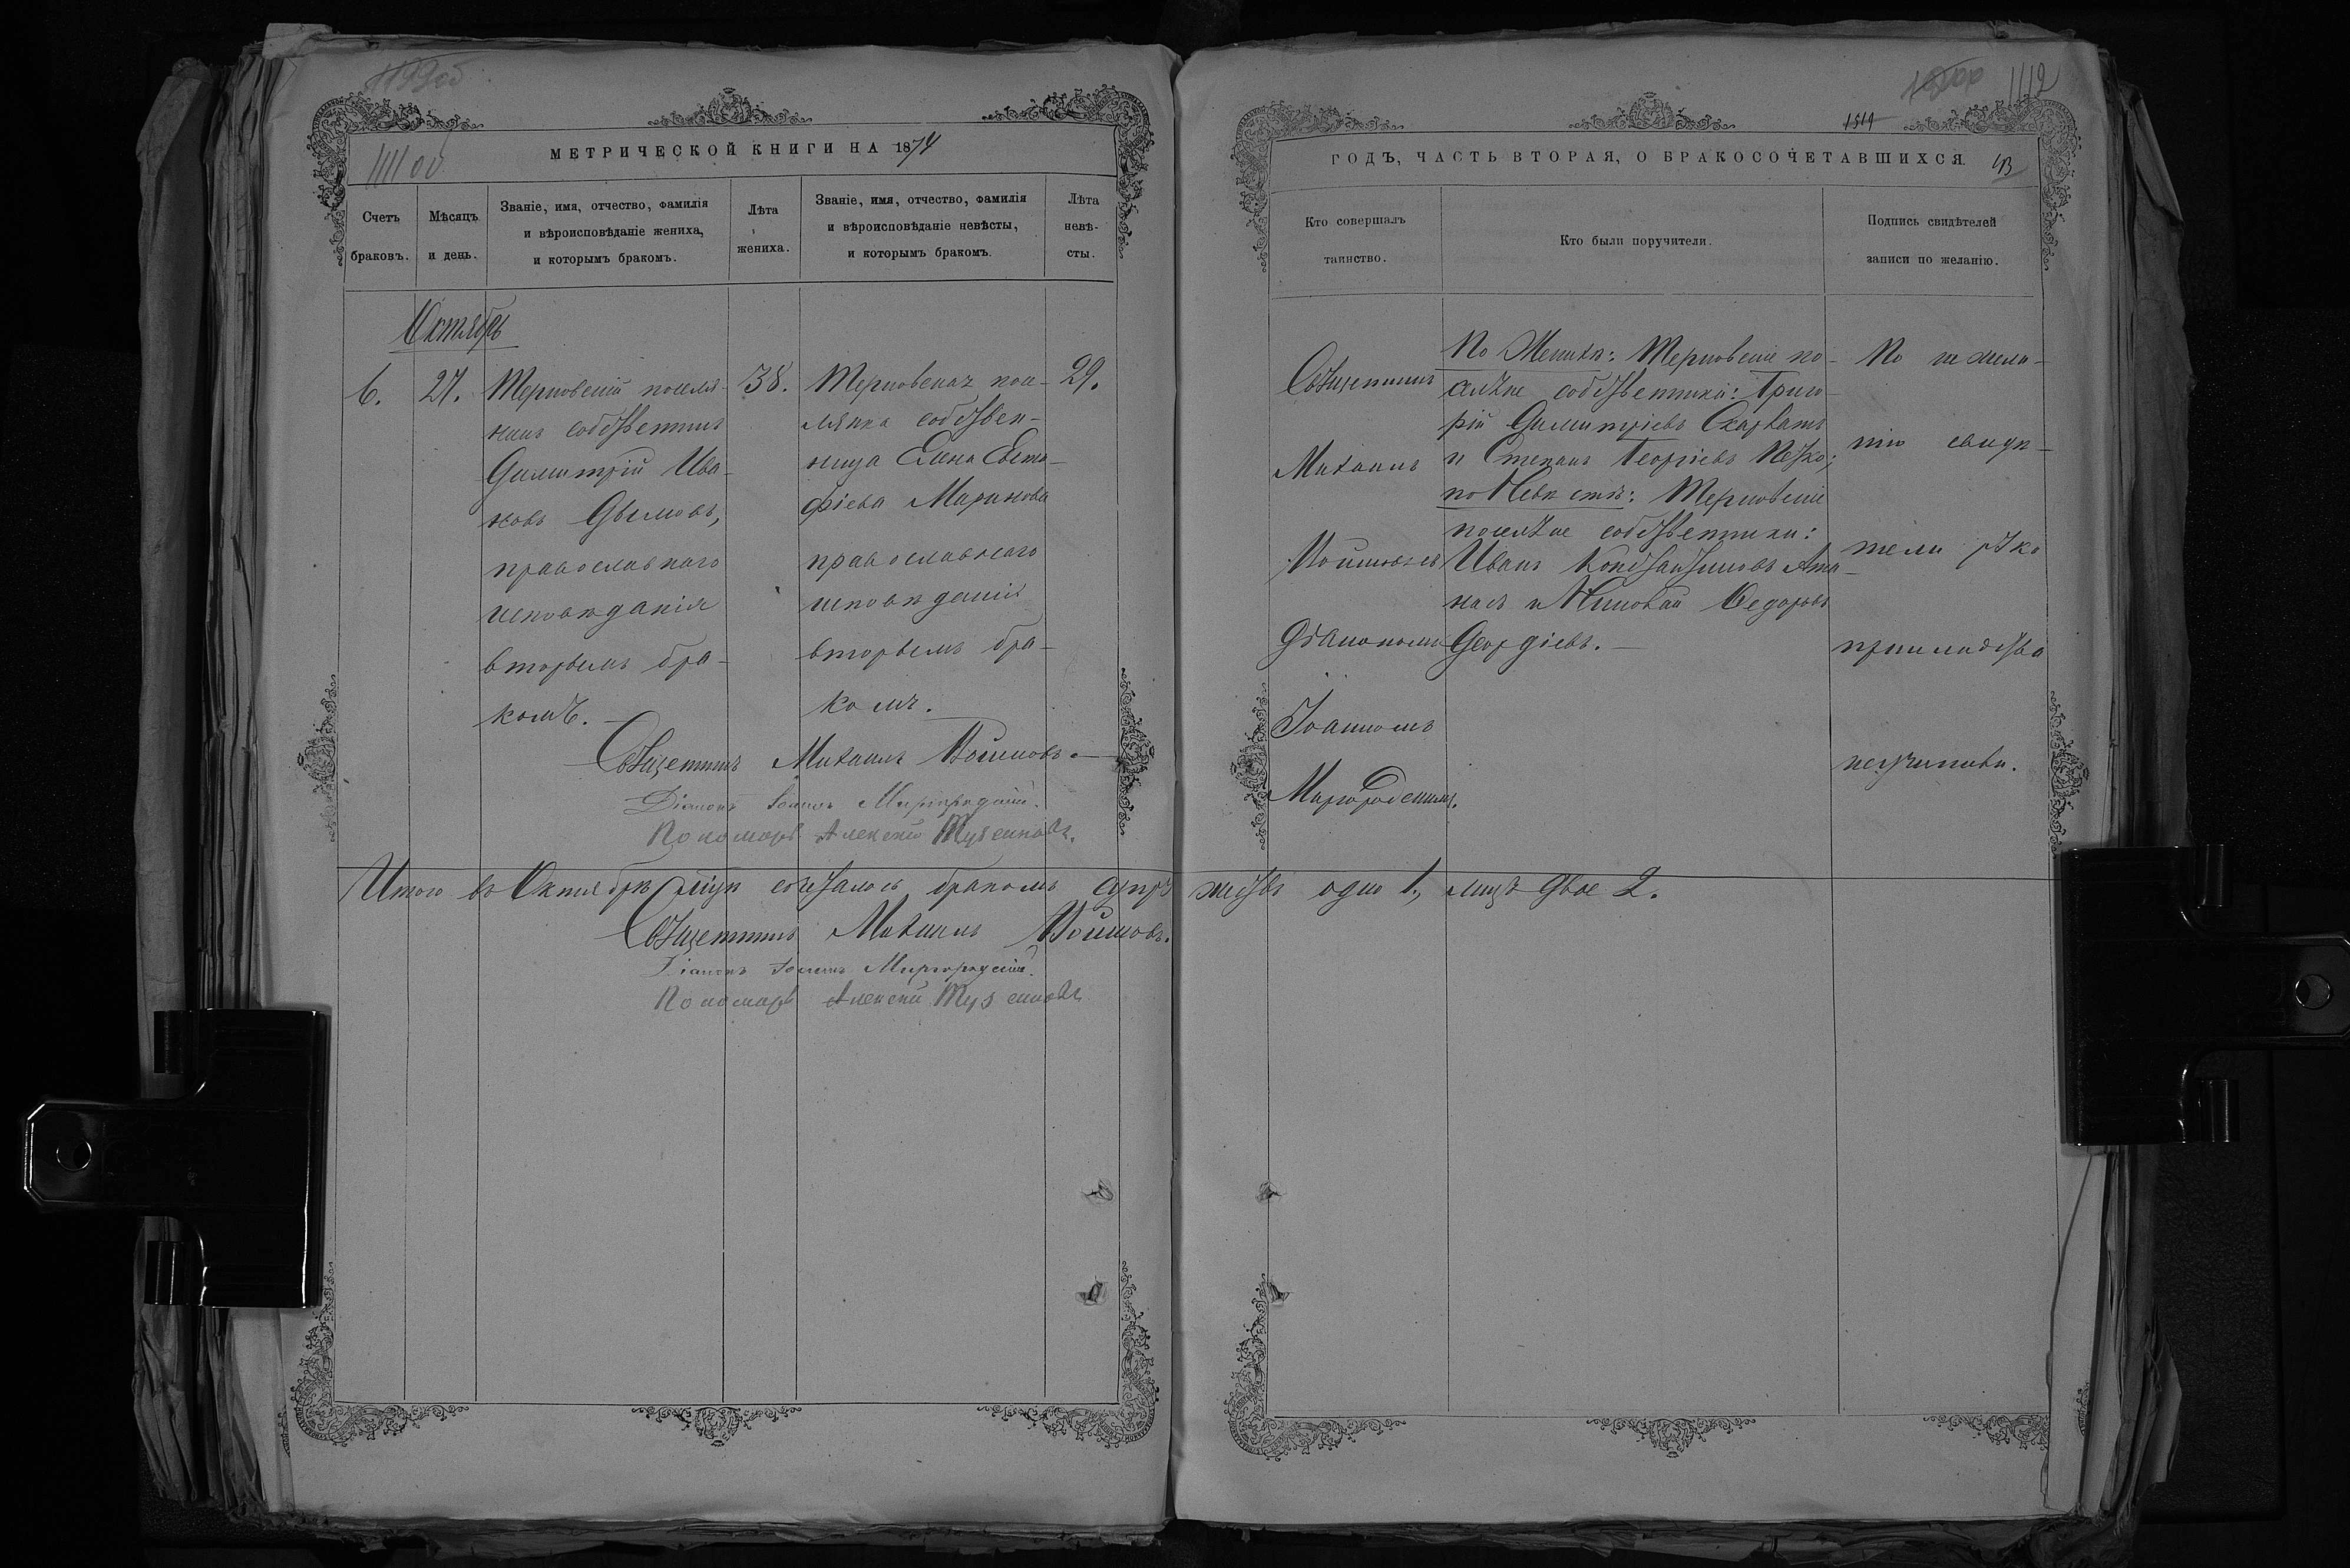 1111 об
МЕТРИЧЕСКОЙ КНИГИ НА 1874
Счетъ браковъ.
Мѣсяцъ и день.
Званіе, имя, отчество, фамилія
и вѣроисповѣданіе жениха,
и которымъ бракомъ.
Лѣта жениха.
Званіе, имя, отчество, фамилія
и вѣроисповѣданіе невѣсты,
и которымъ бракомъ.
Лѣта невѣ-
сты.
Октябрь
6.
27.
Терновскій поселя-
нинъ собственникъ
Димитрій Ива-
новъ Дымовъ,
православнаго
исповѣданія
вторымъ бра-
комъ.
38.
Терновская посе-
лянка собствен-
ница Елена Евста-
фіева Маринова
православнаго
исповѣданія
вторымъ бра-
комъ.
29.
Священникъ Михаилъ Войновъ.
Діаконъ Іоаннъ Миргородскій.
Пономарь Алексій
Итого въ Октябрѣ мѣсяцѣ сочеталось бракомъ супру
Священникъ Михаилъ Войновъ.
Діаконъ Іоаннъ Миргородскій.
Пономарь Алексій
1112
1514
ГОДЪ, ЧАСТЬ ВТОРАЯ, О БРАКОСОЧЕТАВШИХСЯ.
43
Кто совершалъ
таинство.
Кто были поручители.
Подпись свидѣтелей
записи по желанію.
Священникъ
Михаилъ
Войновъ съ
Діакономъ
Іоанномъ
Миргородскимъ.
По Женихѣ: Терновскіе по-
селяне собственники: Григо-
рій Димитріевъ Скарлатъ
и Степанъ Георгіевъ Петко;
по Невѣстѣ: Терновскіе
поселяне собственники:
Иванъ Константиновъ Ата-
насъ и Николай Ѳедоровъ
Георгіевъ.
По не жела-
нію свидѣ-
тели руко
прикладства
неучинили.
жествъ одно 1, лицъ двое 2.